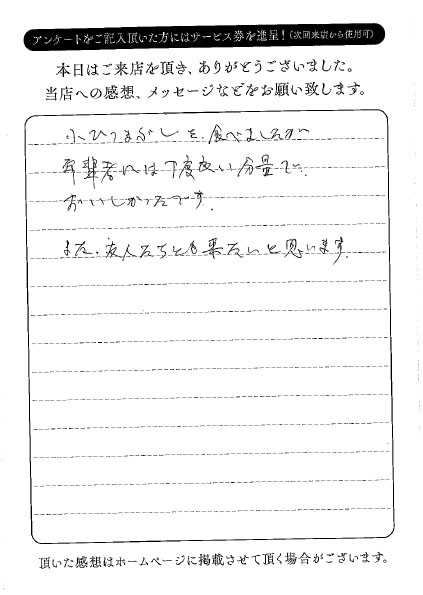 アンケートをご記入頂いた方にはサービス券を進呈!(次回来店から使用可)
本日はご来店を頂き、ありがとうございました。
当店への感想、メッセージなどをお願い致します。
小ひつまぶしを、食べましたが
年輩者には丁度良い分量で、
おいしかったです。
また、友人たちとも来たいと思います。
頂いた感想はホームページに掲載させて頂く場合がございます。